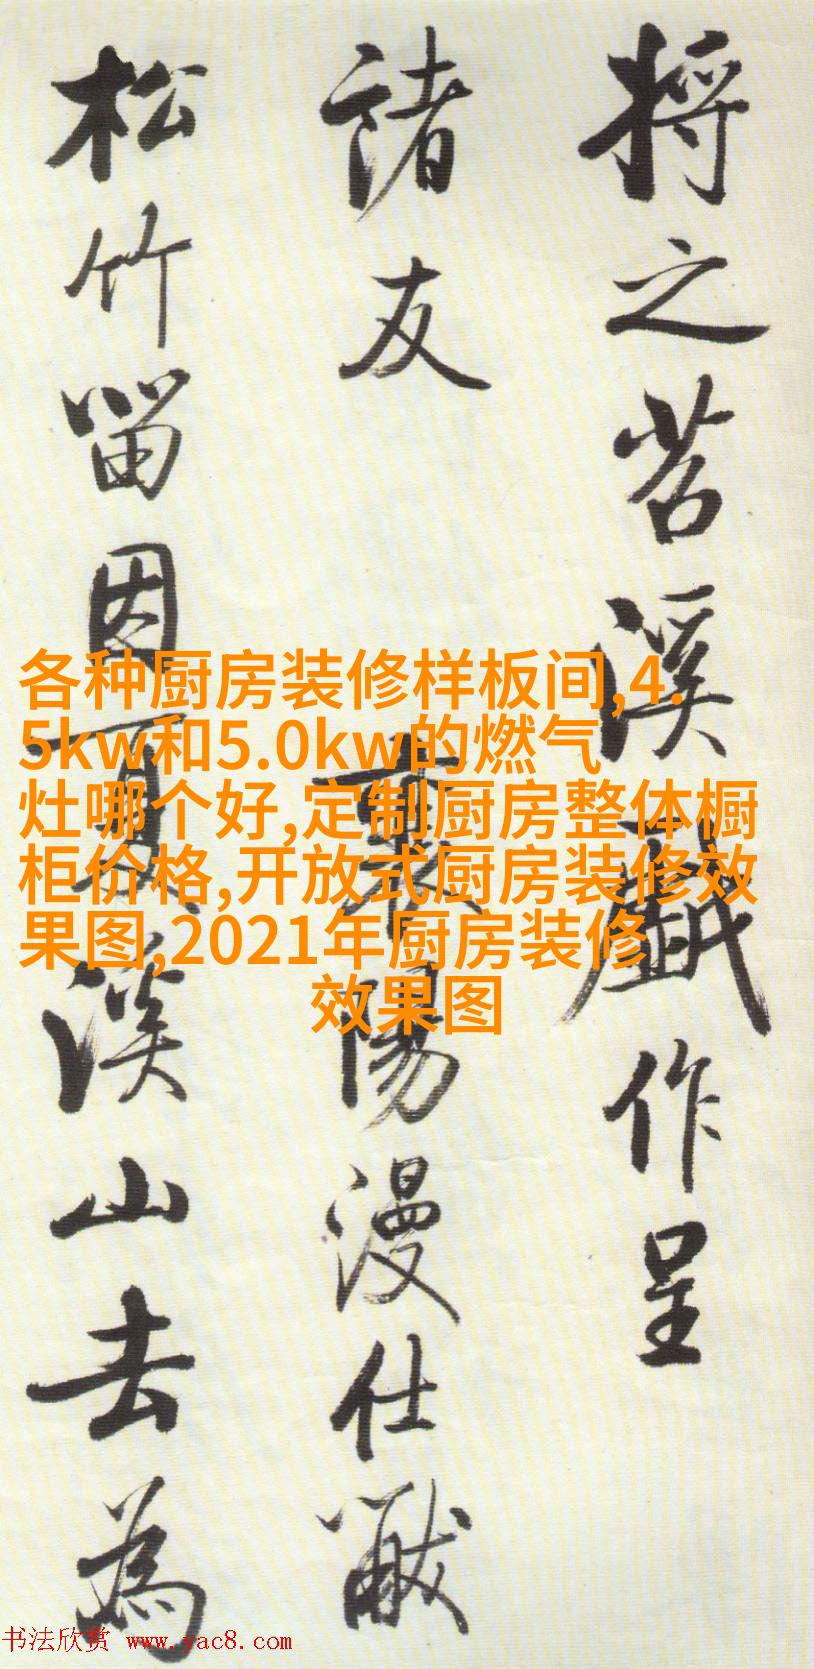 將之苕溪戯作呈
諸友
襄陽漫仕黻
松竹留因夏溪山去為
各种厨房装修样板间,4.
5kw和5.0kw的燃气
灶哪个好,定制厨房整体橱
柜价格,开放式厨房装修效
果图,2021年厨房装修
效果图
书法欣赏 www.yac8.com